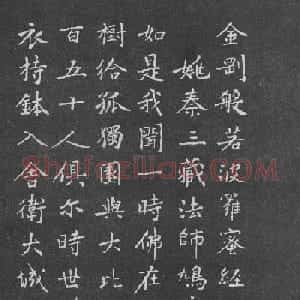 金剛般若波羅蜜経
姚秦三藏法師鳩
如是我聞一時佛在
樹給孤獨園與大比
百五十人俱尔時世
衣持鉢入舍衛大城